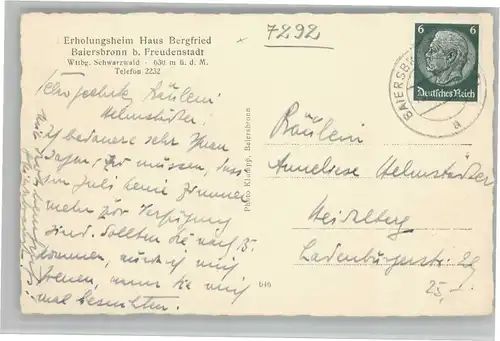 7292
Erholungsheim Haus Bergfried
Baiersbronn b. Freudenstadt
Wttbg. Schwarzwald - 630 m ü. d. M.
Telefon 2232
6 6
Deutsches Reich
BAIERSB
a
Sehr geehrtes Fräulein
Helmstädter!
Ich bedauere sehr Ihnen
sagen zu müssen, dass
im Juli keine Zimmer
mehr zur Verfügung
sind. Sollten Sie nach B.
kommen, würde ich mich
freuen, wenn Sie mich
mal besuchten.
Photo Klumpp, Baiersbronn
Fräulein
Anneliese Helmstädter
Heidelberg
Ladenburgerstr. 29
25,-